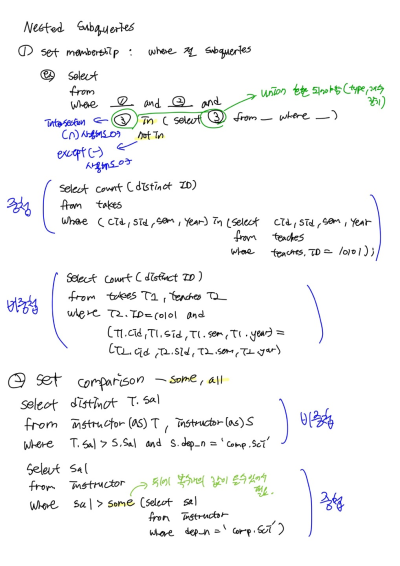 Nested Subqueries
① set membership : where 절 subqueries
예) select
from
where ① and ② and
③ in ( select ③ from _ where _ )
→ union 호환 되어야함 (type, 개수 같기)
intersection ←
(∩) 사용해도 ok
not in
except (-) ←
사용해도 ok
중첩
select count ( distinct ID)
from takes
where ( cid, sid, sem, year) in ( select cid, sid, sem, year
from teaches
where teaches. ID = 10101 ) ;
비중첩
select count ( distinct ID )
from takes T1 , teaches T2
where T2. ID = 10101 and
( T1. cid, T1. sid, T1. sem, T1. year) =
( T2. cid, T2. sid, T2. sem, T2. year)
② set comparison - some, all
select distinct T. sal
from instructor (as) T , instructor (as) S
where T. sal > S. sal and S. dep_n = 'comp. Sci'
비중첩
select sal
from instructor
where sal > some ( select sal
from instructor
where dep_n = ' comp. Sci' )
→ 뒤에 복수개의 값이 올수있어서 필요.
중첩